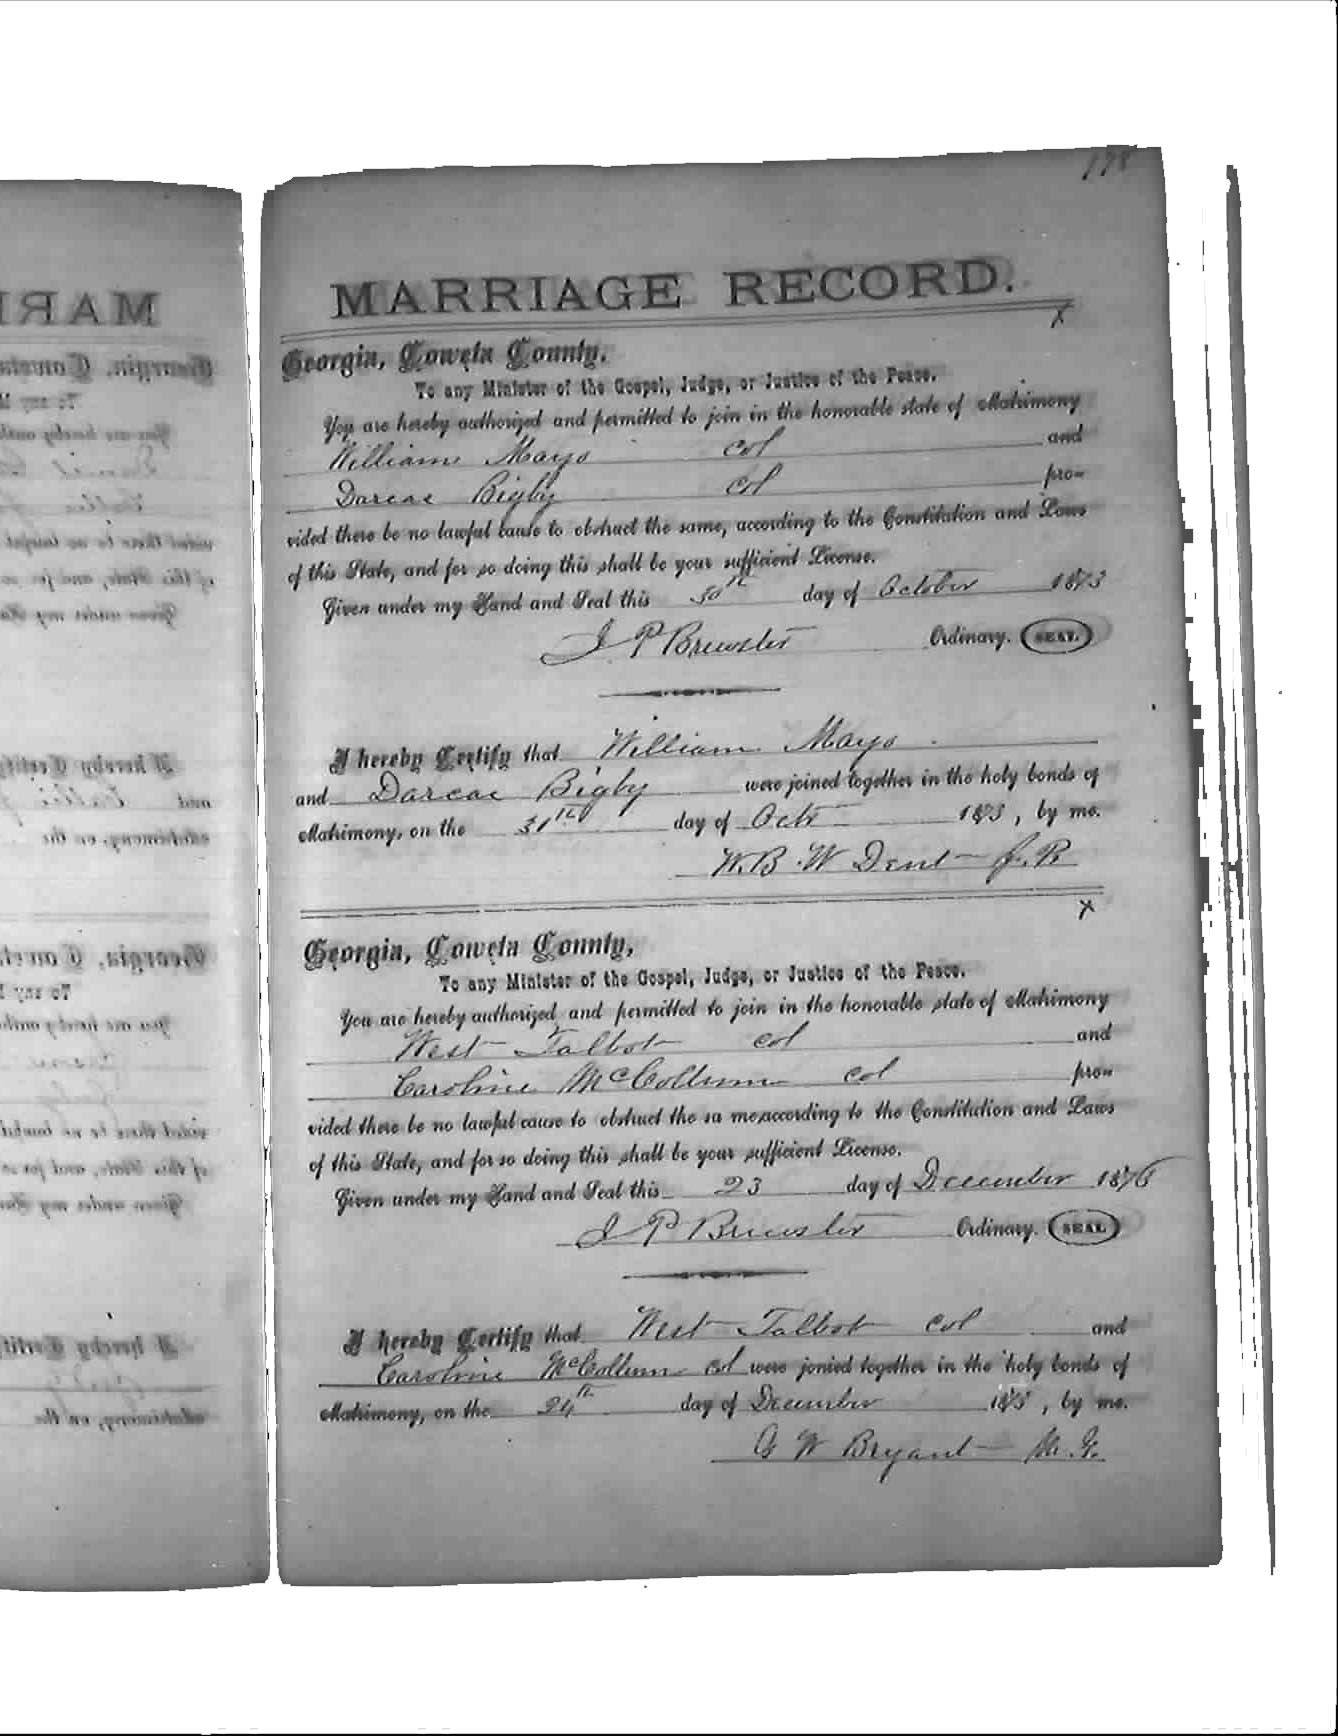 178
MARRIAGE RECORD.
x
Georgia, Coweta County.
To any Minister of the Gospel, Judge, or Justice of the Peace.
You are hereby authorized and permitted to join in the honorable state of Matrimony
William Mays col and
Darcas Bigby col pro-
vided there be no lawful cause to obstruct the same, according to the Constitution and Laws
of this State, and for so doing this shall be your sufficient License.
Given under my Hand and Seal this 30th day of October 1873
J P Brewster Ordinary. SEAL.
I hereby Certify that William Mays
and Darcas Bigby were joined together in the holy bonds of
Matrimony, on the 31th day of Oct 1873, by me.
W. B. W Dent J. P.
x
Georgia, Coweta County,
To any Minister of the Gospel, Judge, or Justice of the Peace.
You are hereby authorized and permitted to join in the honorable state of Matrimony
West Talbot col and
Caroline McCollum col pro-
vided there be no lawful cause to obstruct the sa me,according to the Constitution and Laws
of this State, and for so doing this shall be your sufficient License.
Given under my Hand and Seal this 23 day of December 1876
J P Brewster Ordinary. SEAL
I hereby Certify that West Talbot col and
Caroline McCollum col were jonied together in the holy bonds of
Matrimony, on the 24th day of December 1875, by me.
G W Bryant M. G.